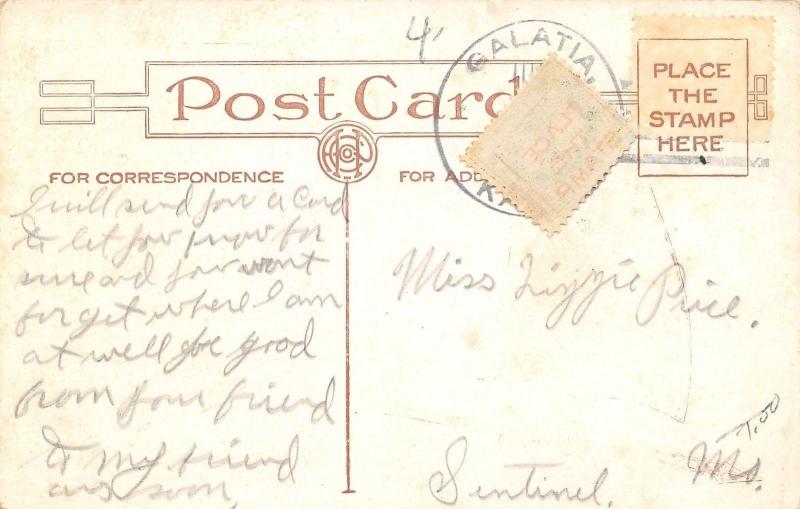 4
GALATIA,
Post Card
PLACE
THE
STAMP
HERE
FOR CORRESPONDENCE
FOR ADD
K
I will send you a Card
to let you know for
sure and you wont
forget where I am
at well be good
from your friend
to my friend
ans soon,
Miss Lizzie Price.
Sentinel.
Mo.
1.00